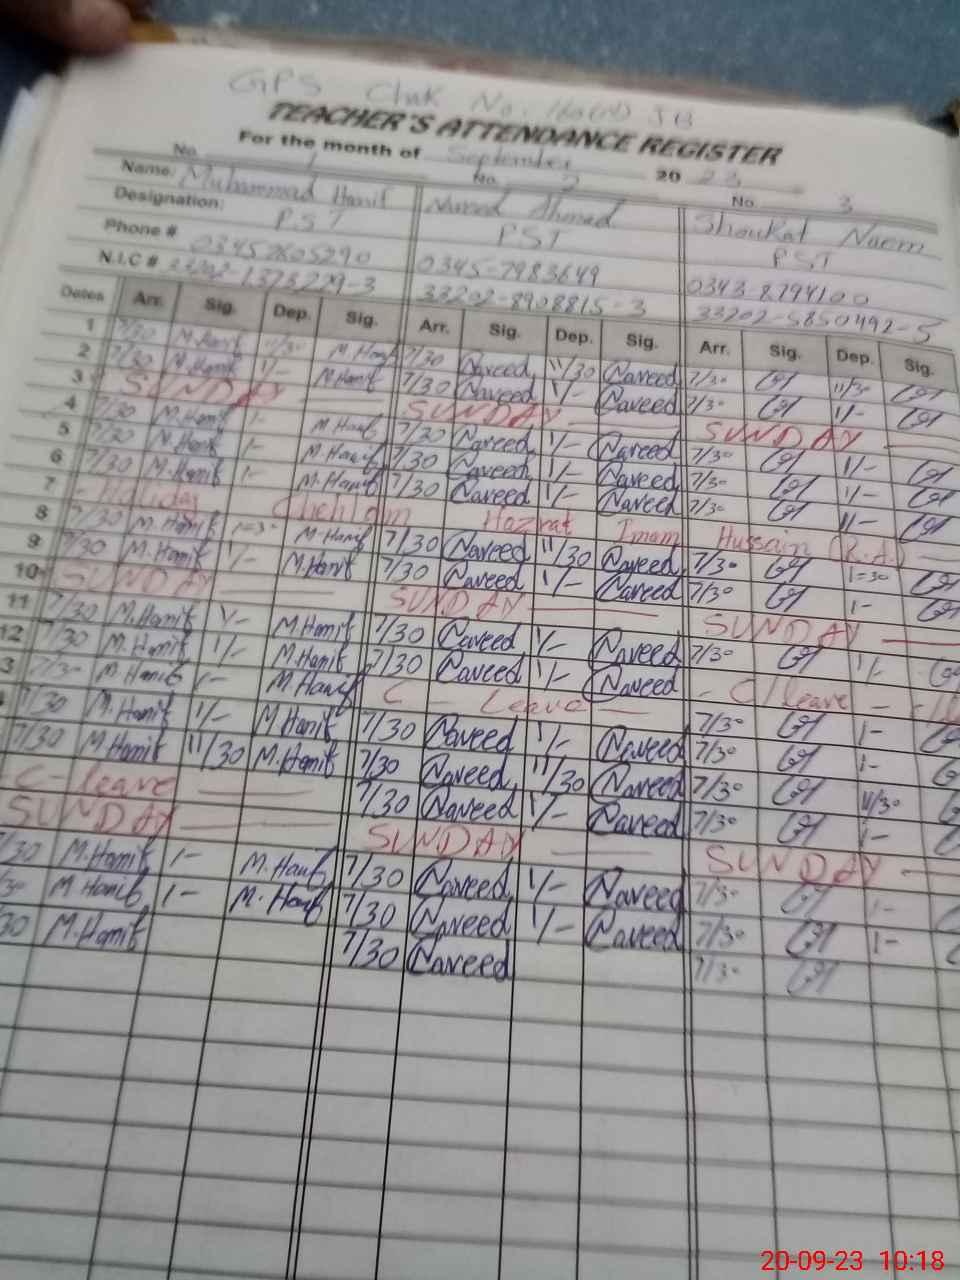 GPS Chak No. 160(A) JB
TEACHER'S ATTENDANCE REGISTER
For the month of September 2023
No. 1 No. 2 No. 3
Name: Muhammad Hanif Naveed Ahmad Shoukat Naem
Designation: PST PST PST
Phone # 03457605290 0345-7983649 0343-8794100
N.I.C # 33202-1373229-3 33202-8908815-3 33202-5850492-5
Dates Arr. Sig. Dep. Sig. Arr. Sig. Dep. Sig. Arr. Sig. Dep. Sig.
1 7/30 M.Hanif 11/30 M.Hanif 7/30 Naveed 11/30 Naveed 7/30 11/30
2 7/30 M.Hanif 1/- M.Hanif 7/30 Naveed 1/- Naveed 7/30 1/-
3 SUNDAY SUNDAY SUNDAY
4 7/30 M.Hanif 1- M.Hanif 7/30 Naveed 1/- Naveed 7/30 1/-
5 7/30 M.Hanif 1- M.Hanif 7/30 Naveed 1/- Naveed 7/30 1/-
6 7/30 M.Hanif 1- M.Hanif 7/30 Naveed 1/- Naveed 7/30 1/-
7 - Holiday Chehlam Hazrat Imam Hussain (R.A.)
8 7/30 M.Hanif M.Hanif 7/30 Naveed 11/30 Naveed 7/30
9 7/30 M.Hanif 1/- M.Hanif 7/30 Naveed 1/- Naveed 7/30 1-
10 SUNDAY SUNDAY SUNDAY
11 7/30 M.Hanif 1/- M.Hanif 7/30 Naveed 1/- Naveed 7/30 1/-
12 7/30 M.Hanif 1/- M.Hanif 7/30 Naveed 1/- Naveed - C/leave -
3 7/30 M.Hanif 1/- M.Hanif C - Leave - 7/30 1-
7/30 M.Hanif 1/- M.Hanif 7/30 Naveed 1/- Naveed 7/30 1-
7/30 M.Hanif 11/30 M.Hanif 7/30 Naveed 11/30 Naveed 7/30 11/30
- C- leave 7/30 Naveed 1/- Naveed 7/30 1-
SUNDAY SUNDAY SUNDAY
7/30 M.Hanif 1- M.Hanif 7/30 Naveed 1/- Naveed 7/30 1-
M.Hanif 1- M.Hanif 7/30 Naveed 1/- Naveed 7/30 1-
30 M.Hanif 7/30 Naveed 7/30
20-09-23 10:18